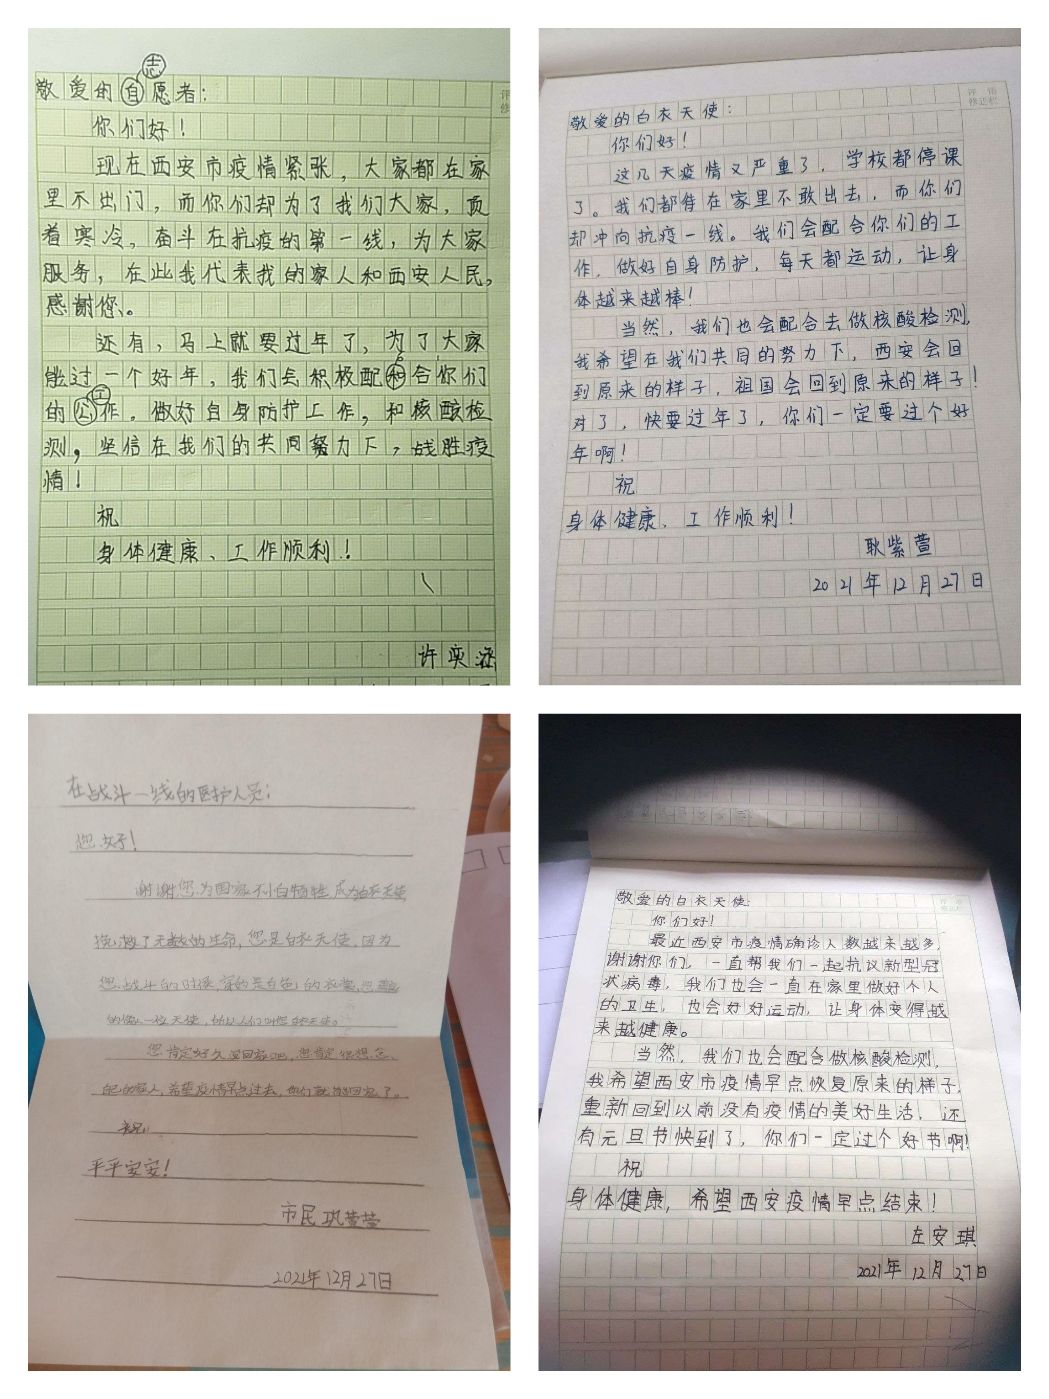 敬爱的志愿者：
你们好！
现在西安市疫情紧张，大家都在家
里不出门，而你们却为了我们大家，顶
着寒冷，奋斗在抗疫的第一线，为大家
服务，在此我代表我的家人和西安人民，
感谢您、。
还有，马上就要过年了，为了大家
能过一个好年，我们会积极配合你们
的工作。做好自身防护工作，和核酸检
测，坚信在我们的共同努力下，战胜疫
情！
祝
身体健康、工作顺利！
许奕涵
敬爱的白衣天使：
你们好！
这几天疫情又严重了，学校都停课
了。我们都待在家里不敢出去，而你们
却冲向抗疫一线。我们会配合你们的工
作，做好自身防护，每天都运动，让身
体越来越棒！
当然，我们也会配合去做核酸检测，
我希望在我们共同的努力下，西安会回
到原来的样子，祖国会回到原来的样子！
对了，快要过年了，你们一定要过个好
年啊！
祝
身体健康、工作顺利！
耿紫萱
2021年12月27日
在战斗一线的医护人员：
您好！
谢谢您为国家不怕牺牲，成为白衣天使，
挽救了无数的生命，您是白衣天使，因为
您战斗的时候，穿的是白色的衣裳，
的像一位天使，所以人们叫您白衣天使。
您肯定好久没回家吧，您肯定很想念
自己的家人，希望疫情早点过去，你们就能回家了。
祝
平平安安！
市民巩萱萱
2021年12月27日
评语
修正栏
敬爱的白衣天使：
你们好！
最近西安市疫情确诊人数越来越多，
谢谢你们，一直帮我们一起抗议新型冠
状病毒，我们也会一直在家里做好个人
的卫生，也会好好运动，让身体变得越
来越健康。
当然，我们也会配合做核酸检测，
我希望西安市疫情早点恢复原来的样子，
重新回到以前没有疫情的美好生活，还
有元旦节快到了，你们一定过个好节啊！
祝
身体健康，希望西安疫情早点结束！
左安琪
2021年12月27日